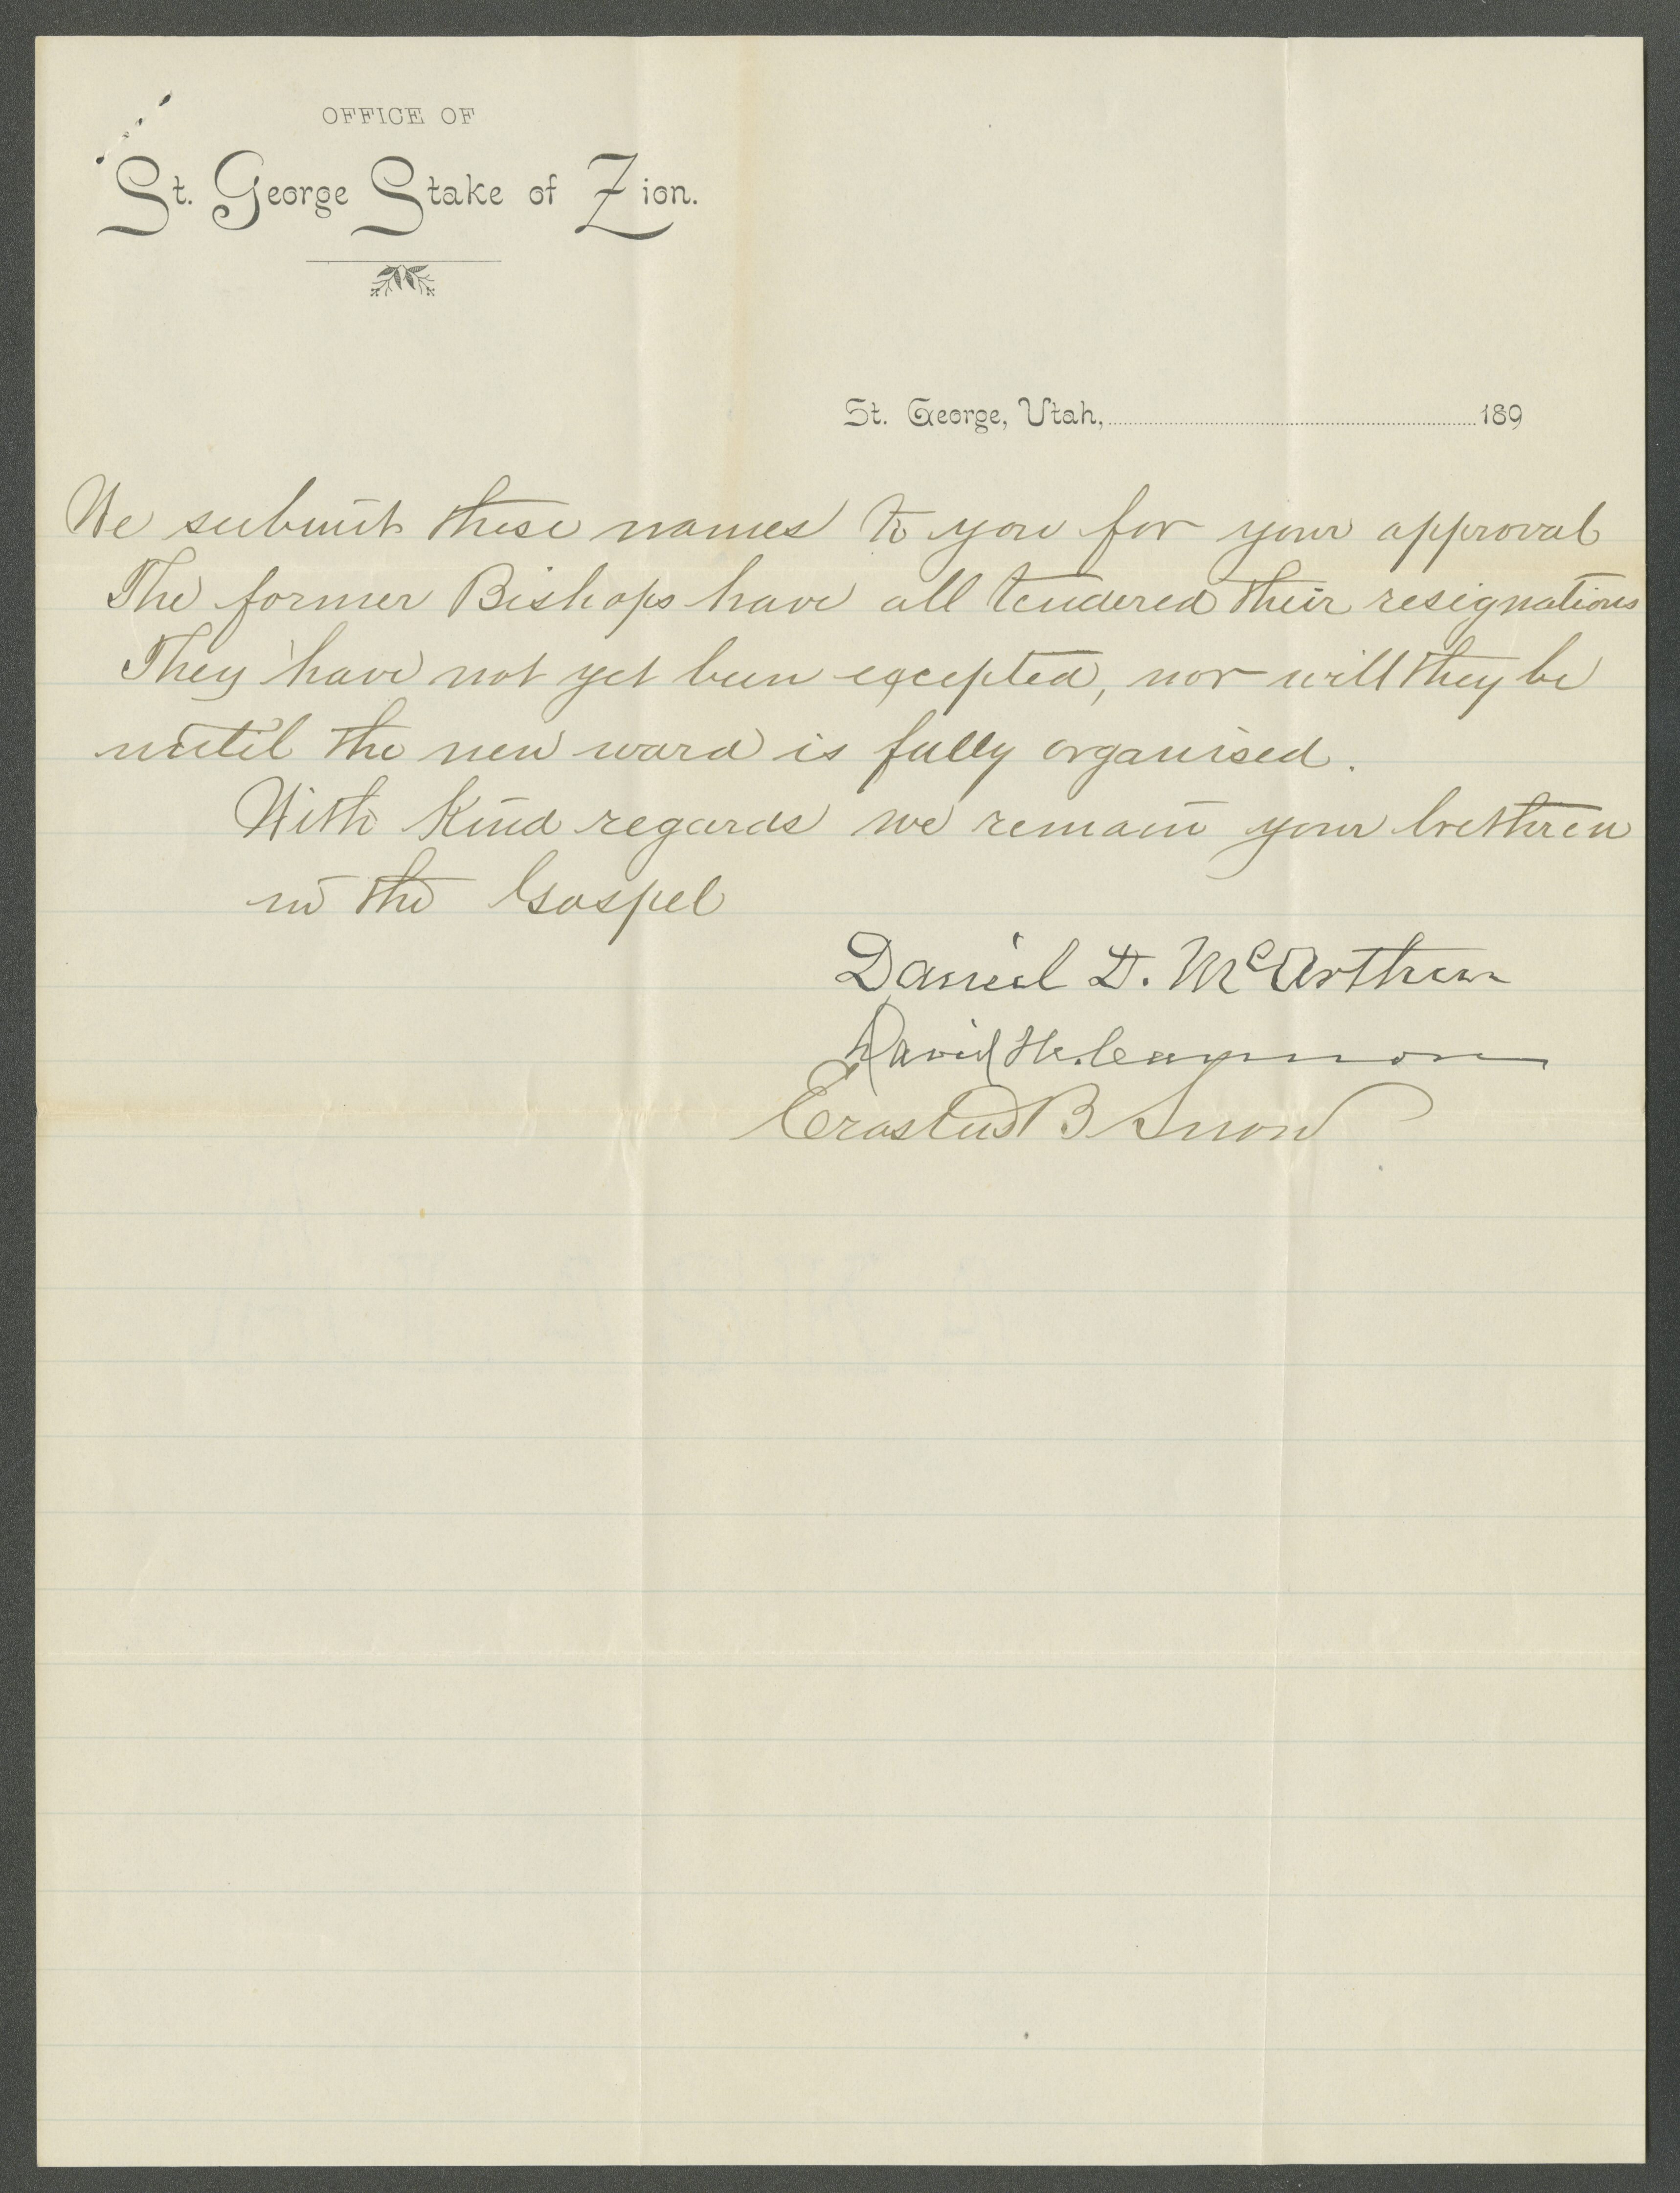 OFFICE OF
St. George Stake of Zion.
St. George, Utah,..........189
We submit these names to you for your approval
The former Bishops have all tendered their resignations
They have not yet been excepted, nor will they be
until the new ward is fully organised.
With kind regards we remain your brethren
in the Gospel
Daniel D. McArthur
David H. Cannon
Erastus B Snow